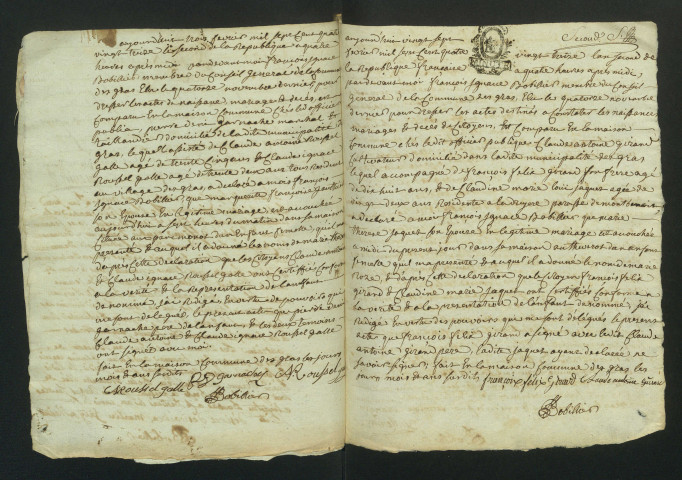 aujourd'huit trois fevries mil sept cent quatre
vingt treize l'an second de la Republique a quatre
heures apres midi pardevant moi François ignace
Bobillier membre du Conseil General de la Commune
des gras Elue le quatorze novembre dernier pour
dresser les actes de naissance, mariage & deces est
Comparu en la maison Commune
publie pierre
taillandie domicilié de la dite municipalité
gras, lequel assisté de Claude antoine Roussel
galle agé de trente cinq ans & Claude ignace
Roussel galle agé de trente deux ans tous residents
au village des gras, a déclaré a moi François
ignace Bobillier que marguerite françoise
son Epouse en legitime mariage est accouchée
aujourd'hui a sept heures du matin dans sa maison
d'un enfant femelle qu'il m'a
presenté & auquel il a donné les noms de
d'apres cette declaration que les Citoyens Claude antoine
& Claude ignace Roussel galle ont Certifiés Conforme
a la verité & la Representation de l'enfant
denommé, j'ai Redigé en vertu des pouvoirs qui
me sont delegués, le present acte que pierre
garnache pere de l'enfant & les deux temoins
Claude antoine & Claude ignace Roussel galle
ont signés avec moi.
fait en la maison Commune des gras les jours,
mois & ans susdits
CI Roussel galle P garnache C A Roussel galle
Bobillier
Second
aujourd'huit vingt sept
fevries mil sept cent quatre vingt treize l'an second de
la Republique Françoise a quatre heures apres midi,
pardevant moi François ignace Bobillier membre du Conseil
General de la Commune des gras, Elu le quatorze novembre
dernier pour dresser les actes destinés a Constater les naissances
mariages & deces des Citoyens, Est Comparu en la maison
Commune Claude antoine Girard
Cultivateur domicilié dans la dite municipalité des Gras
lequel accompagné de François Felix girard son frere agé
de dix huit ans, & de Claudine marie jaquet agée de
vingt deux ans Residente a
a declaré a moi François ignace Bobillier que marie
therese jaquet son Epouse en legitime mariage est accouchée
a midi du present jour dans sa maison d'un enfant
femelle qu'il m'a presenté & auquel il a donné le nom de marie
Roze & d'apres cette declaration que le Citoyen François felix
girard & Claudine marie jaquet ont certifiés conforme a
la verité & a la presentation de l'enfant denommé, j'ai
Redigé en vertu des pouvoirs que me sont delegués le present
acte que François Felix Girard a signé avec Claude
antoine Girard pere, ladite jaquet ayant declaré ne
savoir signer, fait en la maison Commune des gras, les
jour, mois & ans susdits françois felix Girard Claude antoine Girard
Bobillier